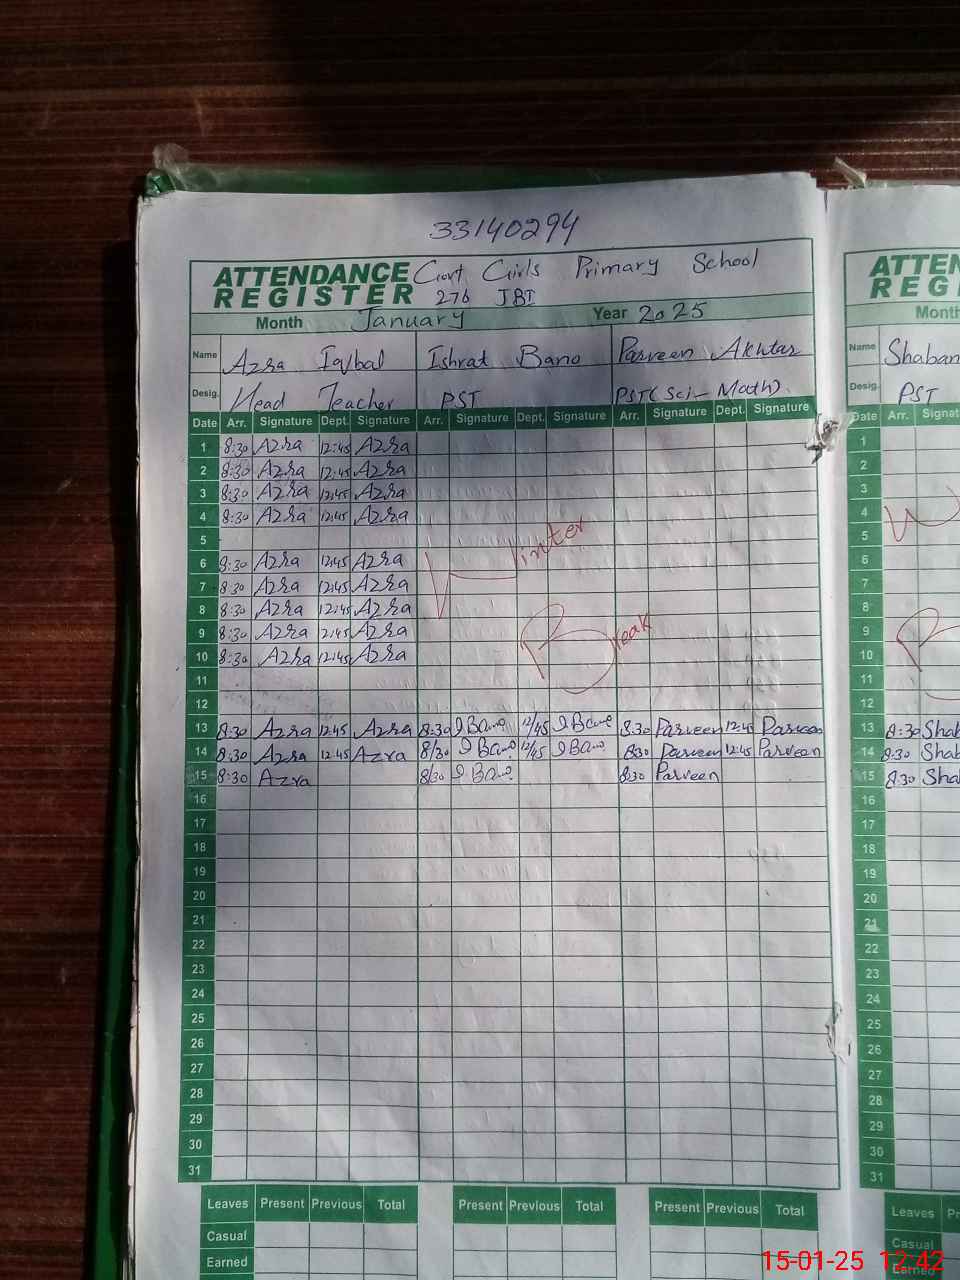 33140294
ATTENDANCE REGISTER Govt Girls Primary School
276 JBI
Month January Year 2025
Name Azra Iqbal Ishrat Bano Parveen Akhtar
Desig. Head Teacher PST PST (Sci-Math)
Date Arr. Signature Dept. Signature Arr. Signature Dept. Signature Arr. Signature Dept. Signature
1 8:30 Azra 12:45 Azra
2 8:30 Azra 12:45 Azra
3 8:30 Azra 12:45 Azra
4 8:30 Azra 12:45 Azra
5
6 8:30 Azra 12:45 Azra
7 8:30 Azra 12:45 Azra
8 8:30 Azra 12:45 Azra
9 8:30 Azra 12:45 Azra
10 8:30 Azra 12:45 Azra
Winter
Break
11
12
13 8:30 Azra 12:45 Azra 8:30 I Bano 12/45 I Bano 8:30 Parveen 12:45 Parveen
14 8:30 Azra 12:45 Azra 8/30 I Bano 12/45 I Bano 8:30 Parveen 12:45 Parveen
15 8:30 Azra 8/30 I Bano 8:30 Parveen
16
17
18
19
20
21
22
23
24
25
26
27
28
29
30
31
Leaves Present Previous Total Present Previous Total Present Previous Total
Casual
Earned
ATTEN
REG
Month
Name Shaban
Desig. PST
Date Arr. Signat
1
2
3
4
5
6
7
8
9
10
11
12
13 8:30 Shab
14 8:30 Shab
15 8:30 Shab
16
17
18
19
20
21
22
23
24
25
26
27
28
29
30
31
Leaves Pr
Casual
Earned
15-01-25 12:42